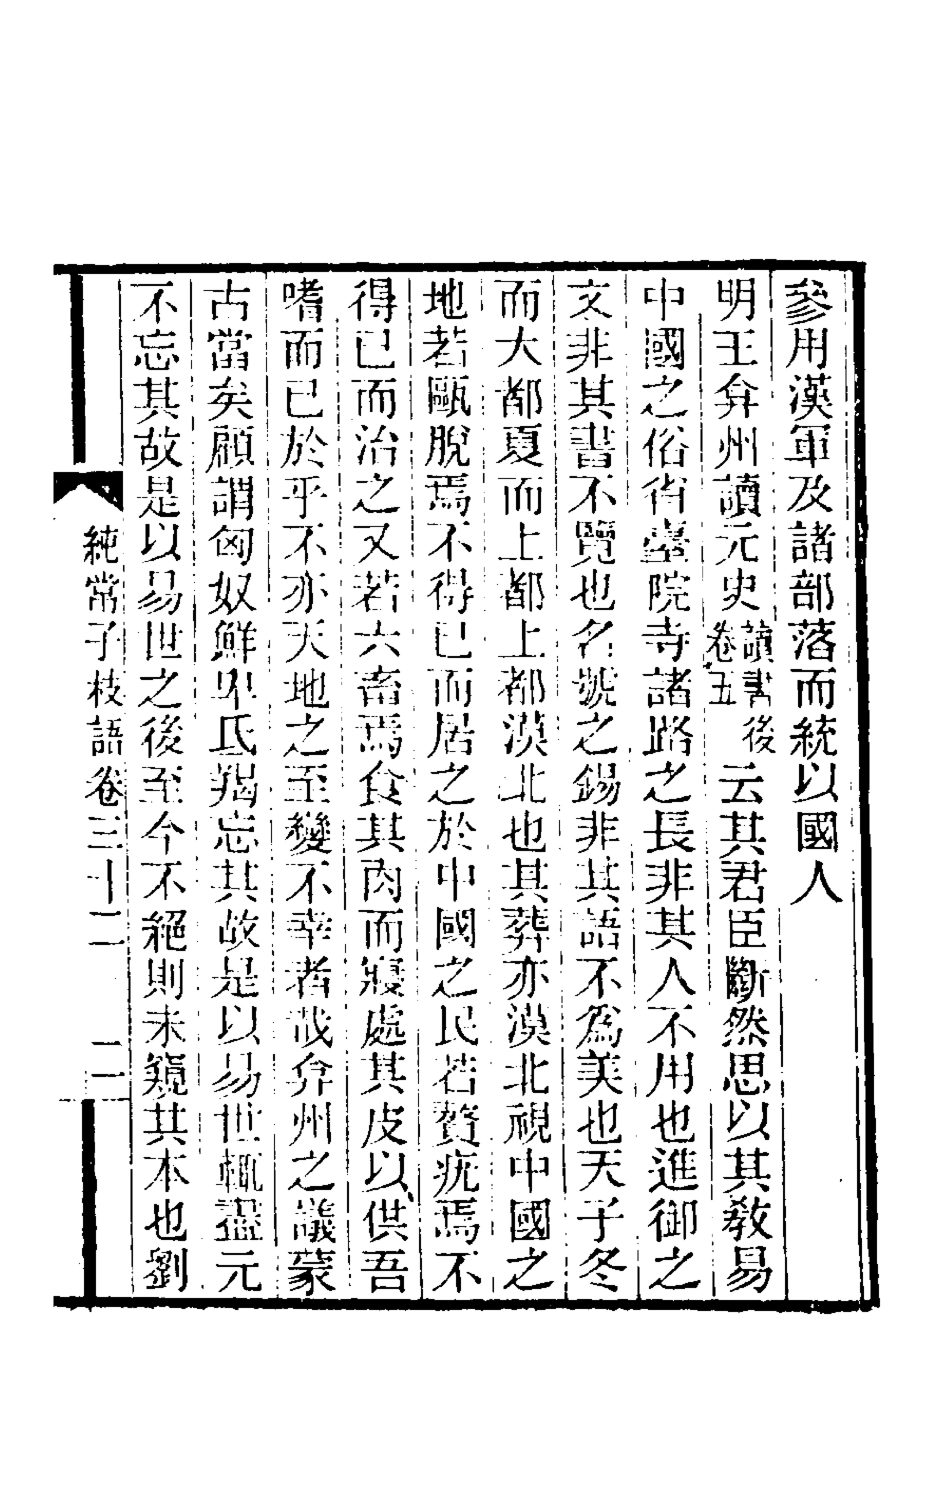 參用漢軍及諸部落而統以國人
明王弇州讀元史讀書後卷五云其君臣斷然思以其教易
中國之俗省臺院寺諸路之長非其人不用也進御之
文非其書不覽也名號之錫非其語不爲美也天子冬
而大都夏而上都上都漠北也其葬亦漠北視中國之
地若甌脫焉不得已而居之於中國之民若贅疣焉不
得已而治之又若六畜焉食其肉而寢處其皮以供吾
嗜而已於乎不亦天地之至變不幸者哉弇州之議蒙
古當矣顧謂匈奴鮮卑氐羯忘其故是以易世輒盡元
不忘其故是以易世之後至今不絕則未窺其本也劉
純常子枝語卷三十二 二